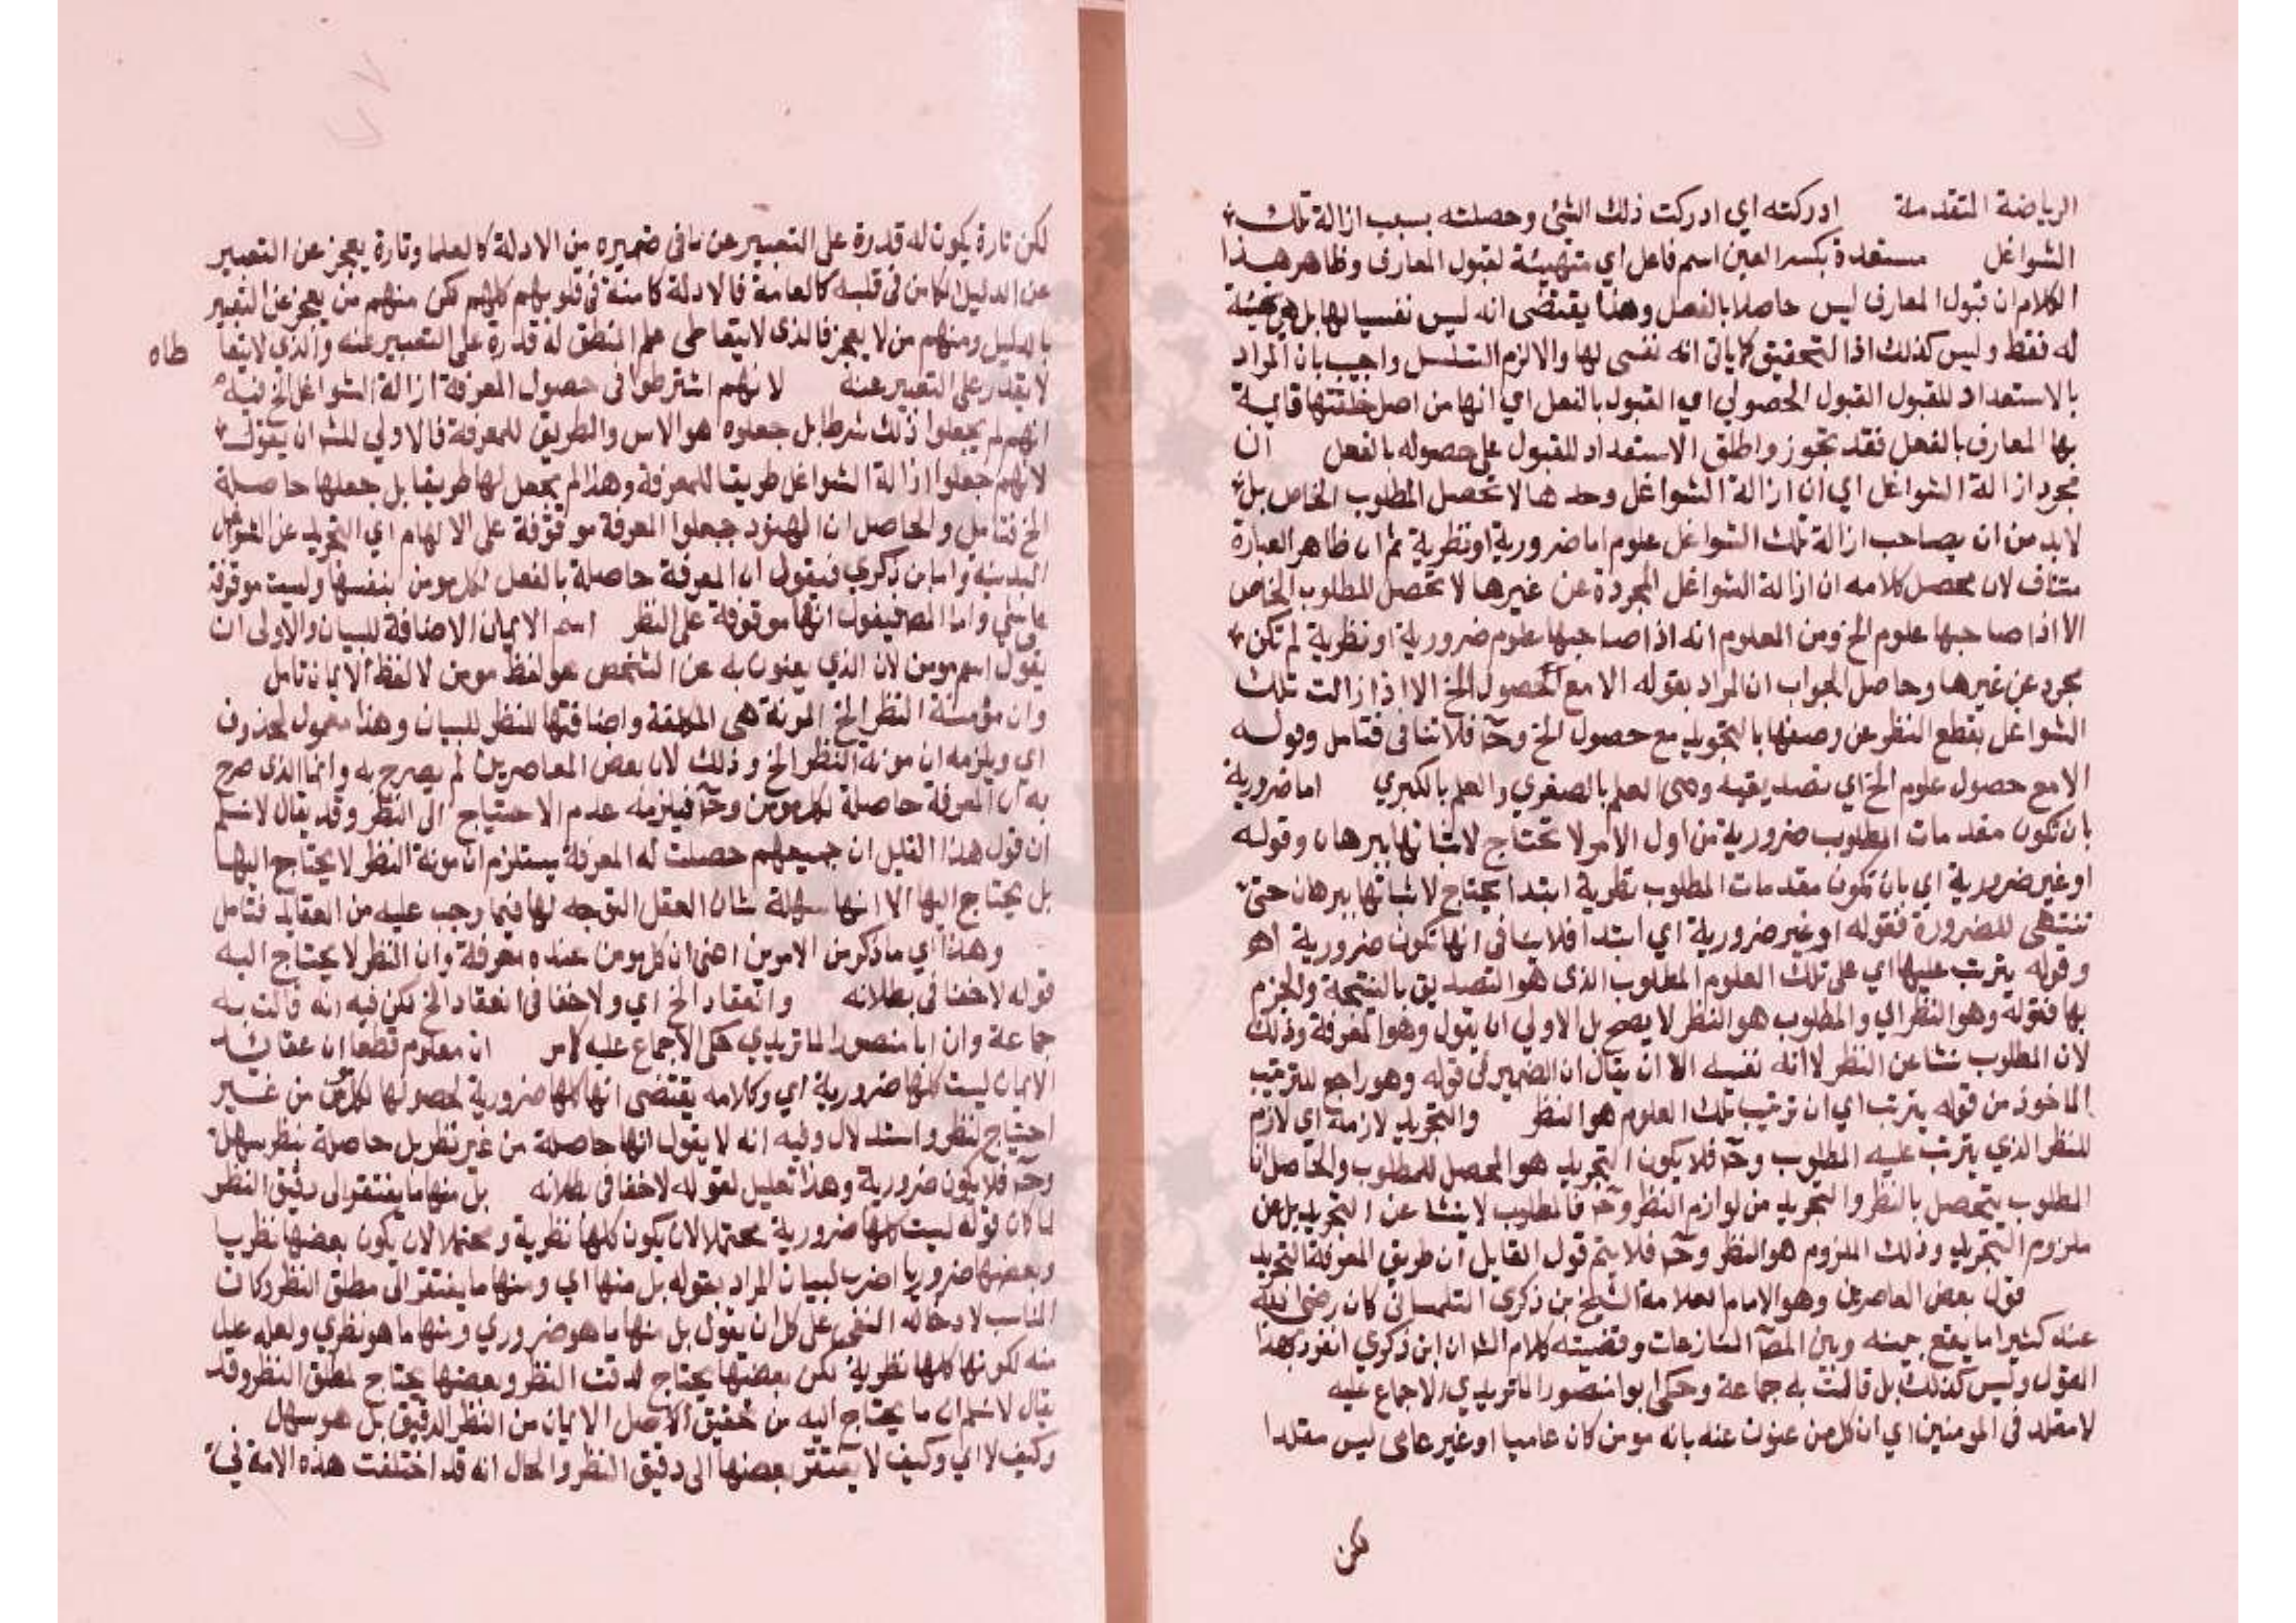 الرياضة المتقدمة ادركته اي ادركت ذلك الشئ وحصلته بسبب ازالة تلك
الشواغل مستعدة بكسر العين اسم فاعل اي متهيئة لقبول المعارف وظاهر هذا
الكلام ان قبول المعارف ليس حاصلا بالفعل وهذا يقتضى انه ليس نفسيا لها بل هى مهيئة
له فقط وليس كذلك اذ التحقيق كما ياتى انه نفسى لها والا لزم التسلسل واجيب بان المراد
بالاستعداد للقبول القبول الحصولي اي القبول بالفعل اي انها من اصل خلقتها قابلة
بها المعارف بالفعل فقد تجوز واطلق الاستعداد للقبول على حصوله بالفعل ان
مجرد ازالة الشواغل اي ان ازالة الشواغل وحدها لا تحصل المطلوب الخاص بل
لابد من ان يصاحب ازالة تلك الشواغل علوم اما ضرورية او نظرية ثم ان ظاهر العبارة
متناف لان محصل كلامه ان ازالة الشواغل المجردة عن غيرها لا تحصل المطلوب الخاص
الا اذا صاحبها علوم الخ ومن المعلوم انه اذا صاحبها علوم ضرورية او نظرية لم تكن
مجرد عن غيرها وحاصل الجواب ان المراد بقوله الا مع الحصول الخ الا اذا زالت تلك
الشواغل بقطع النظر عن وصفها بالتجريد مع حصول الخ وح فلا تنافى فتامل وقوله
الا مع حصول علوم الخ اي تصديقية وهى العلم بالصغري والعلم بالكبري اما ضرورية
بان تكون مقدمات المطلوب ضرورية من اول الامر لا تحتاج لاثباتها ببرهان وقوله
او غير ضرورية اي بان تكون مقدمات المطلوب نظرية ابتدا يحتاج لاثباتها ببرهان حتى
تنتهى للضرورة فقوله او غير ضرورية اي ابتدا فلا ينافى انها تكون ضرورية اهـ
وقوله يترتب عليها اي على تلك العلوم المطلوب الذى هو التصديق بالنتيجة والجزم
بها فقوله وهو النظر اي والمطلوب هو النظر لا يصح بل الاولي ان يقول وهو المعرفة وذلك
لان المطلوب نشا عن النظر لا انه نفسه الا ان يقال ان الضمير فى قوله وهو راجع للترتيب
الماخوذ من قوله يترتب اي ان ترتيب تلك العلوم هو النظر والتجريد لازمة اي لازم
للنظر الذي يترتب عليه المطلوب وح فلا يكون التجريد هو المحصل للمطلوب والحاصل ان
المطلوب يتحصل بالنظر والتجريد من لوازم النظر وح فالمطلوب لا ينشا عن التجريد بل عن
ملزوم التجريد وذلك الملزوم هو النظر وح فلا يتم قول القايل ان طريق المعرفة التجريد
قول بعض المعاصرين وهو الامام العلامة الشيخ بن ذكري التلمسانى كان رضى الله
عنه كثيرا ما يقع بينه وبين المص المنازعات وقضيته كلام الش ان ابن ذكري انفرد بهذا
القول وليس كذلك بل قالت به جماعة وحكى ابو منصور الماتريدي الاجماع عليه
لا مقلد فى المومنين اي ان كل من عنوت عنه بانه مومن كان عاميا او غير عامى ليس مقلدا
لكن
لكن تارة يكون له قدرة على التعبير عن ما فى ضميره من الادلة كالعلما وتارة يعجز عن التعبير
عن الدليل الكامن فى قلبه كالعامة فالادلة كامنة فى قلوبهم كلهم لكن منهم من يعجز عن التعبير
بالدليل ومنهم من لا يعجز فالذى لا يتعاطى علم المنطق له قدرة على التعبير عنه والذي لا يتعا
طاه
لا يقدر على التعبير عنه لانهم اشترطوا فى حصول المعرفة ازالة الشواغل الخ فيه
انهم لم يجعلوا ذلك شرطا بل جعلوه هو الاس والطريق للمعرفة فالاولي للش ان يقول
لانهم جعلوا ازالة الشواغل طريقا للمعرفة وهذا لم يجعل لها طريقا بل جعلها حاصلة
الخ فتامل والحاصل ان الهنود جعلوا المعرفة موقوفة على الالهام اي التجريد عن الشواغل
البدنية واما بن ذكري فيقول ان المعرفة حاصلة بالفعل لكل مومن بنفسها وليست موقوفة
على شي واما المص فيقول انها موقوفة على النظر اسم الايمان الاضافة للبيان والاولى ان
يقول اسم مومن لان الذي يعنون به عن الشخص هو لفظ مومن لا لفظ الايمان تامل
وان مؤنسة النظر الخ المونة هى الكلفة واضافتها للنظر للبيان وهذا معمول لمحذوف
اي ويلزمه ان مونة النظر الخ وذلك لان بعض المعاصرين لم يصرح به وانما الذى صرح
به ان المعرفة حاصلة لكل مومن وح فيلزمه عدم الاحتياج الى النظر وقد يقال لا نسلم
ان قول هذا القليل ان جميعهم حصلت له المعرفة يستلزم ان مونة النظر لا يحتاج اليها
بل يحتاج اليها الا انها سهلة شان العقل التوجه لها فيما وجب عليه من العقايد فتامل
وهذا اي ما ذكر من الامرين اعنى ان كل مومن عنده معرفة وان النظر لا يحتاج اليه
قوله لا خفا فى بطلانه وانعقاد الخ اي ولا خفا فى انعقاد الخ لكن فيه انه قالت به
جماعة وان ابا منصور الماتريدي حكى الاجماع عليه كامر ان معلوم قطعا ان عقائد
الايمان ليست كلها ضرورية اي وكلامه يقتضى انها كلها ضرورية لحصولها لكل مومن من غير
احتياج لنظر واستدلال وفيه انه لا يقول انها حاصلة من غير نظر بل حاصلة بنظر سهل
وح فلا يكون ضرورية وهذا تعليل لقوله لا خفا فى بطلانه بل منها ما يفتقر الى دقيق النظر
لما كان قوله ليست كلها ضرورية محتملا لان يكون كلها نظرية ومحتملا لان يكون بعضها نظريا
وبعضها ضروريا اضرب لبيان المراد بقوله بل منها اي ومنها ما يفتقر الى مطلق النظر وكان
المناسب لادخاله النفى على كل ان يقول بل منها ما هو ضروري ومنها ما هو نظري ولعله عدل
منه لكونها كلها نظرية لكن بعضها يحتاج لدقت النظر وبعضها يحتاج لمطلق النظر وقد
يقال لا نسلم ان ما يحتاج اليه من تحقيق الاصل الايمان من النظر الدقيق بل هو سهل
وكيف لا اي وكيف لا يفتقر بعضها الى دقيق النظر والحال انه قد اختلفت هذه الامة فى